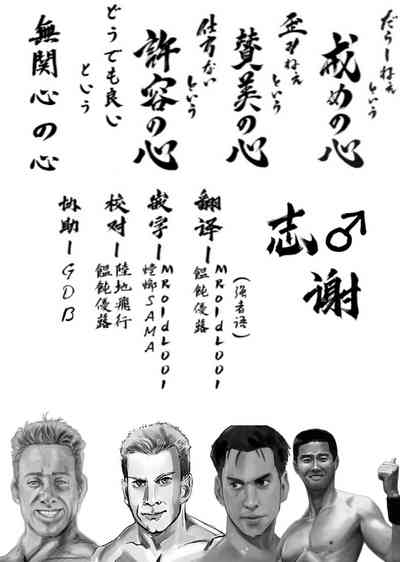 だらしねぇ
という
戒めの心
歪みねぇ
という
賛美の心
仕方ない
という
許容の心
どうでも良い
という
無関心の心
♂志谢
翻译—MRoidLool
(强者语)
饂飩侵蕗
嵌字—MRoidLool
螳螂SAMA
校对—陸地飛行
饂飩侵蕗
协助—GDB